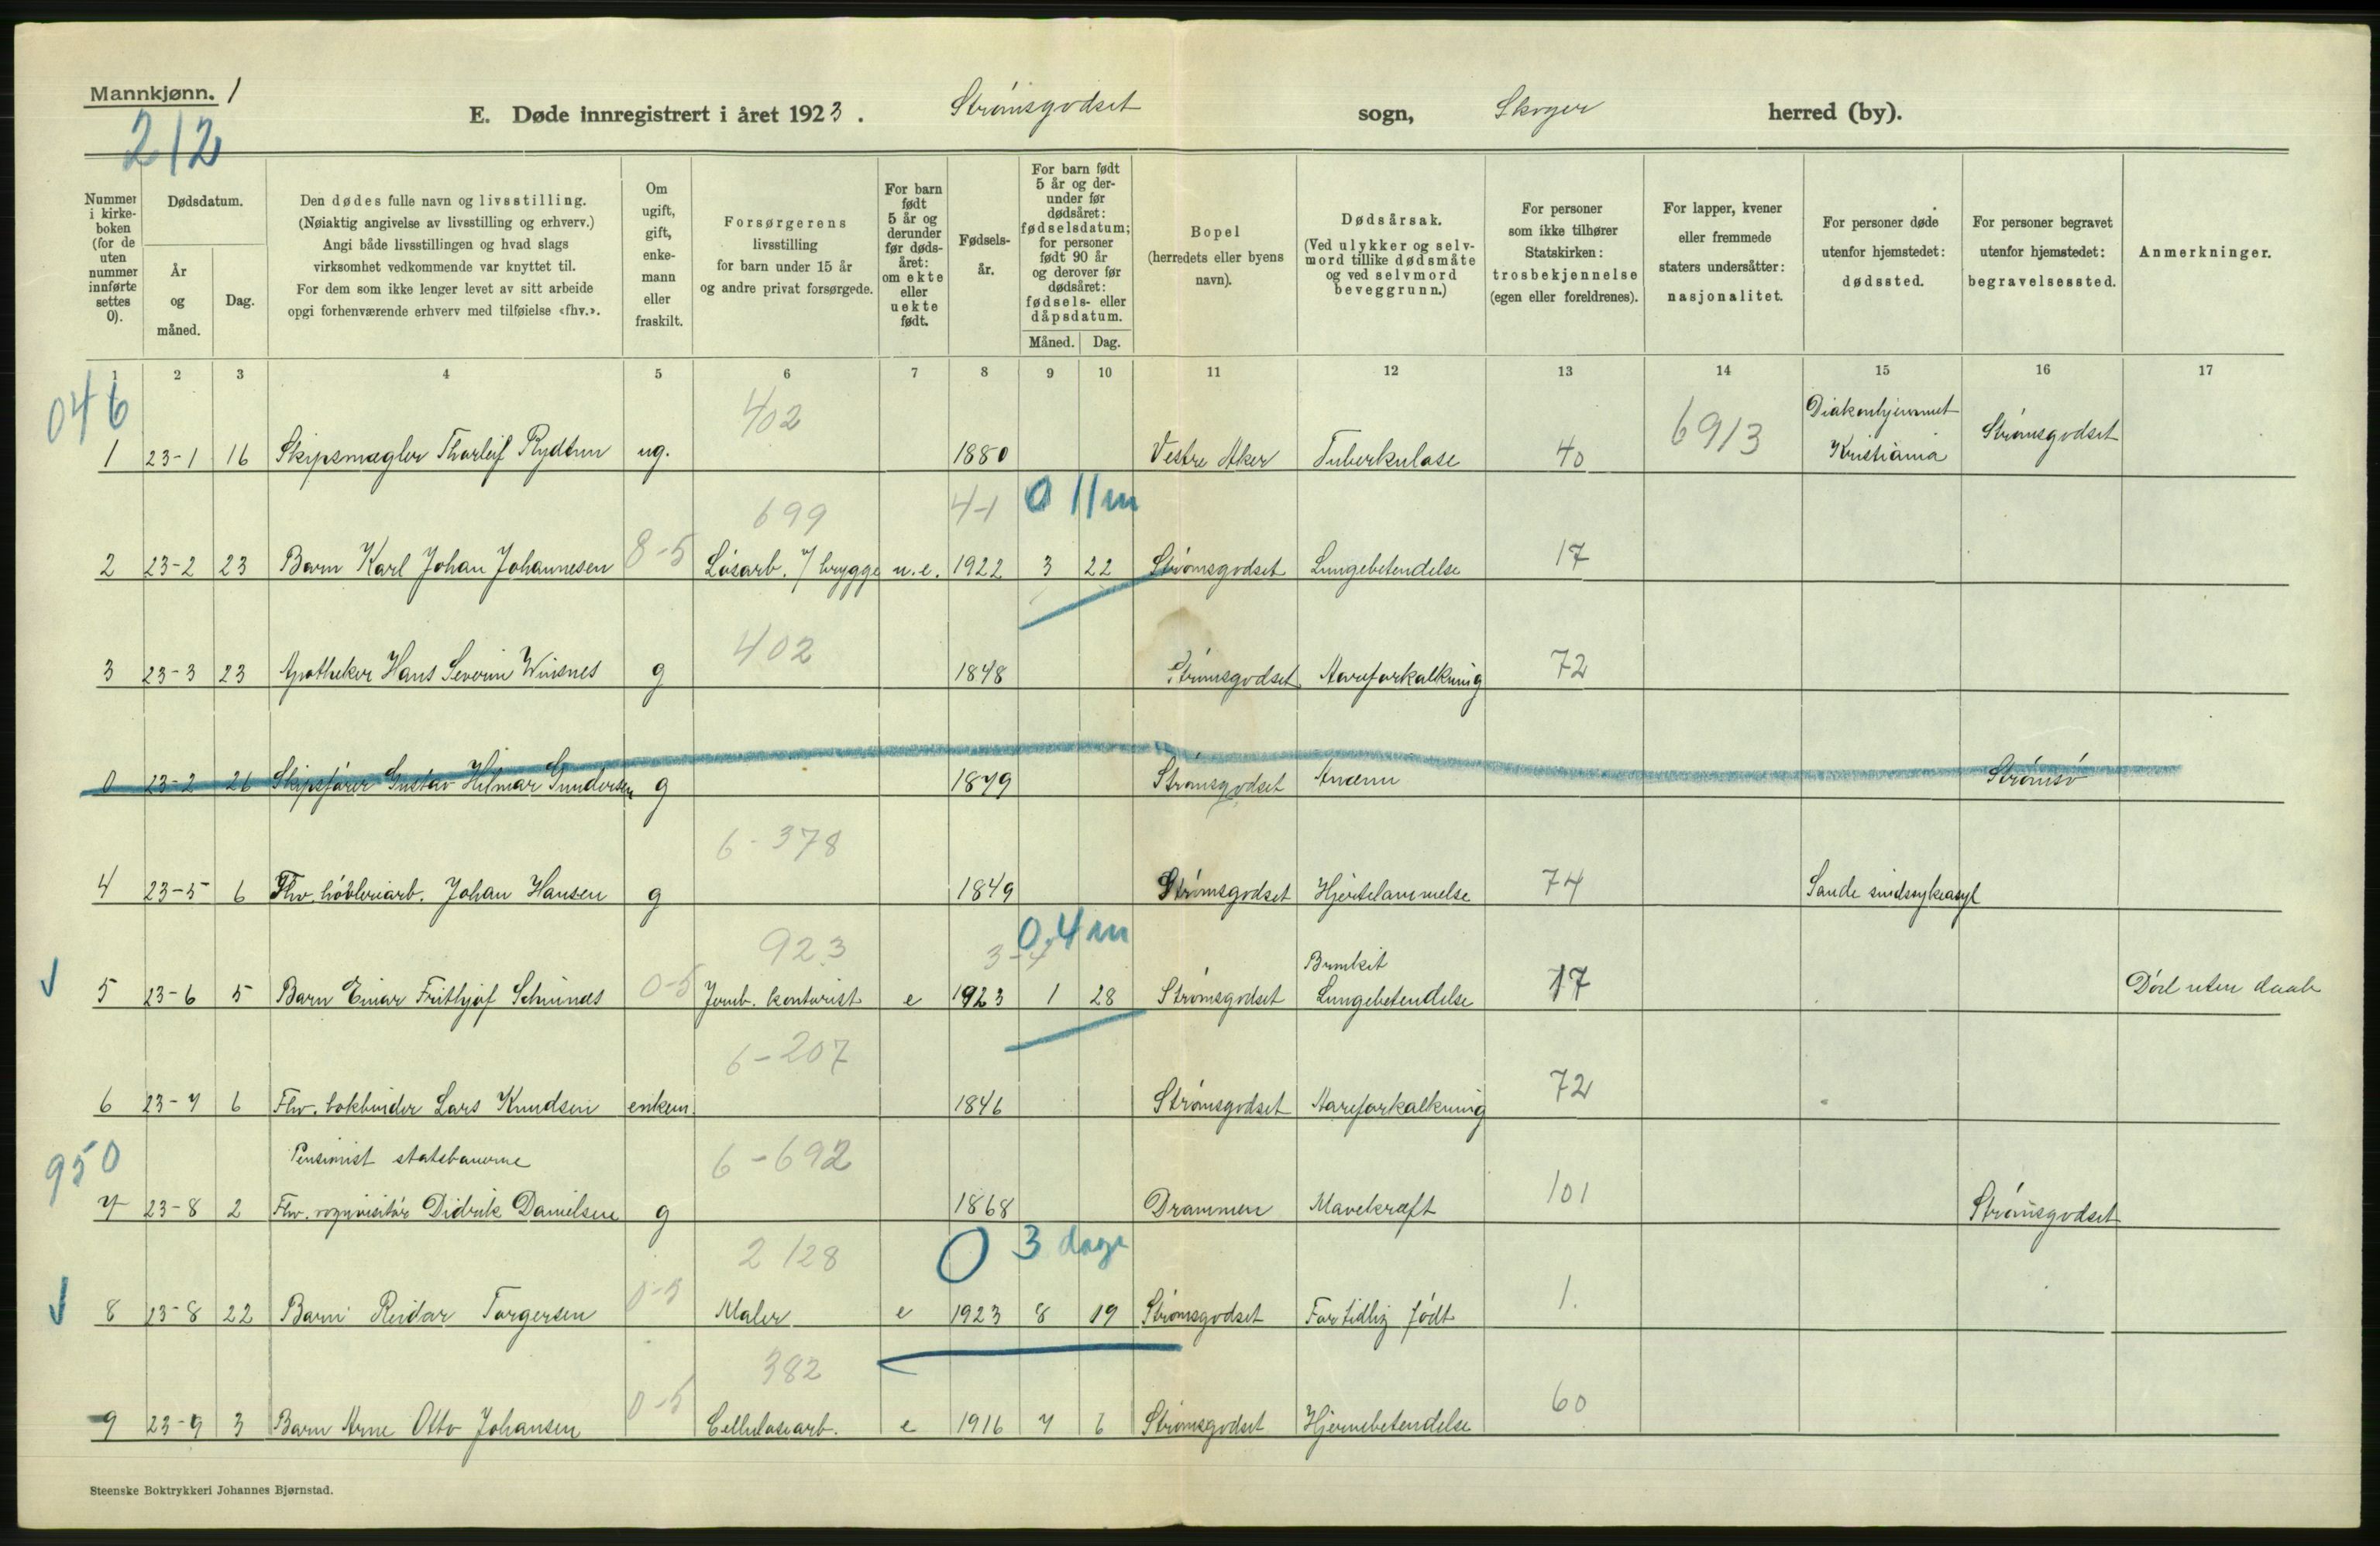 Mannkjønn. 1
212
E. Døde innregistrert i året 1923. Strømsgodset sogn, Skoger herred (by).
Nummer i kirkeboken (for de uten nummer innførte settes 0).
Dødsdatum.
År og måned.
Dag.
Den dødes fulle navn og livsstilling.
(Nøiaktig angivelse av livsstilling og erhverv.)
Angi både livsstillingen og hvad slags
virksomhet vedkommende var knyttet til.
For dem som ikke lenger levet av sitt arbeide
opgi forhenværende erhverv med tilføielse «fhv.».
Om ugift, gift, enkemann eller fraskilt.
Forsørgerens
livsstilling
for barn under 15 år
og andre privat forsørgede.
For barn født 5 år og derunder før dødsåret: om ekte eller uekte født.
Fødselsår.
For barn født 5 år og derunder før dødsåret: fødselsdatum; for personer født 90 år og derover før dødsåret: fødsels- eller dåpsdatum.
Måned. Dag.
Bopel
(herredets eller byens
navn).
Dødsårsak.
(Ved ulykker og selvmord tillike dødsmåte og ved selvmord beveggrunn.)
For personer
som ikke tilhører
Statskirken:
trosbekjennelse
(egen eller foreldrenes).
For lapper, kvener
eller fremmede
staters undersåtter:
nasjonalitet.
For personer døde
utenfor hjemstedet:
dødssted.
For personer begravet
utenfor hjemstedet:
begravelsessted.
Anmerkninger.
1 2 3 4 5 6 7 8 9 10 11 12 13 14 15 16 17
046 402 6913 Diakonhjemmet
1 23-1 16 Skipsmægler Thorleif Rydtun ug. 1880 Vestre Aker Tuberkulose 40 Kristiania Strømsgodset
699 4-1 0 11 m
2 23-2 23 Barn Karl Johan Johannesen 8-5 Løsarb. / brygge u.e. 1922 3 22 Strømsgodset Lungebetendelse 17
402
3 23-3 23 Apotheker Hans Severin Winsnes g 1848 Strømsgodset Aareforkalkning 72
0 23-2 26 Skipsfører Gustav Hilmar Gundersen g 1849 Strømsgodset Anæmi Strømsø
6-378
4 23-5 6 Fhv. høvleriarb. Johan Hansen g 1849 Strømsgodset Hjertelammelse 74 Sande sindssykeasyl
923 3-4 0.4 m Bronkit
5 23-6 5 Barn Einar Frithjof Schunds 0-5 Jernb. kontorist e 1923 1 28 Strømsgodset Lungebetendelse 17 Død uten daab
6-207
6 23-7 6 Fhv. bokbinder Lars Knudsen enkem. 1846 Strømsgodset Aareforkalkning 72
950 Pensionist statsbanerne 6-692
7 23-8 2 Fhv. vognvisitør Didrik Danielsen g 1868 Drammen Mavekræft 101 Strømsgodset
2 128 0 3 dage
8 23-8 22 Barn Reidar Torgersen 0-5 Maler e 1923 8 19 Strømsgodset For tidlig født 1.
382
9 23-9 3 Barn Arne Otto Johansen 0-5 Cellulosearb. e 1916 7 6 Strømsgodset Hjernebetendelse 60
Steenske Boktrykkeri Johannes Bjørnstad.